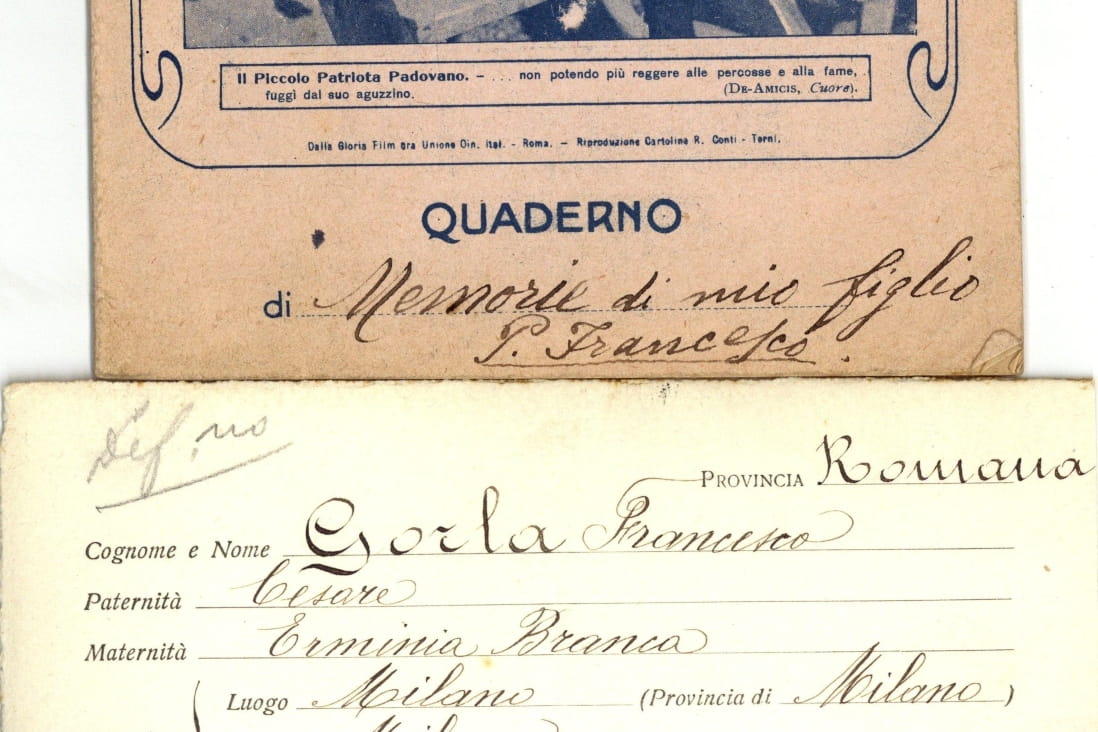 Il Piccolo Patriota Padovano. – ... non potendo più reggere alle percosse e alla fame,
fuggì dal suo aguzzino. (De-Amicis, Cuore).
Dalla Gloria Film ora Unione Cin. Ital. - Roma. – Riproduzione Cartoline R. Conti - Terni.
QUADERNO
di Memorie di mio figlio
P. Francesco.
Def.no
Provincia Romana
Cognome e Nome Gorla Francesco
Paternità Cesare
Maternità Erminia Branca
Luogo Milano (Provincia di Milano)